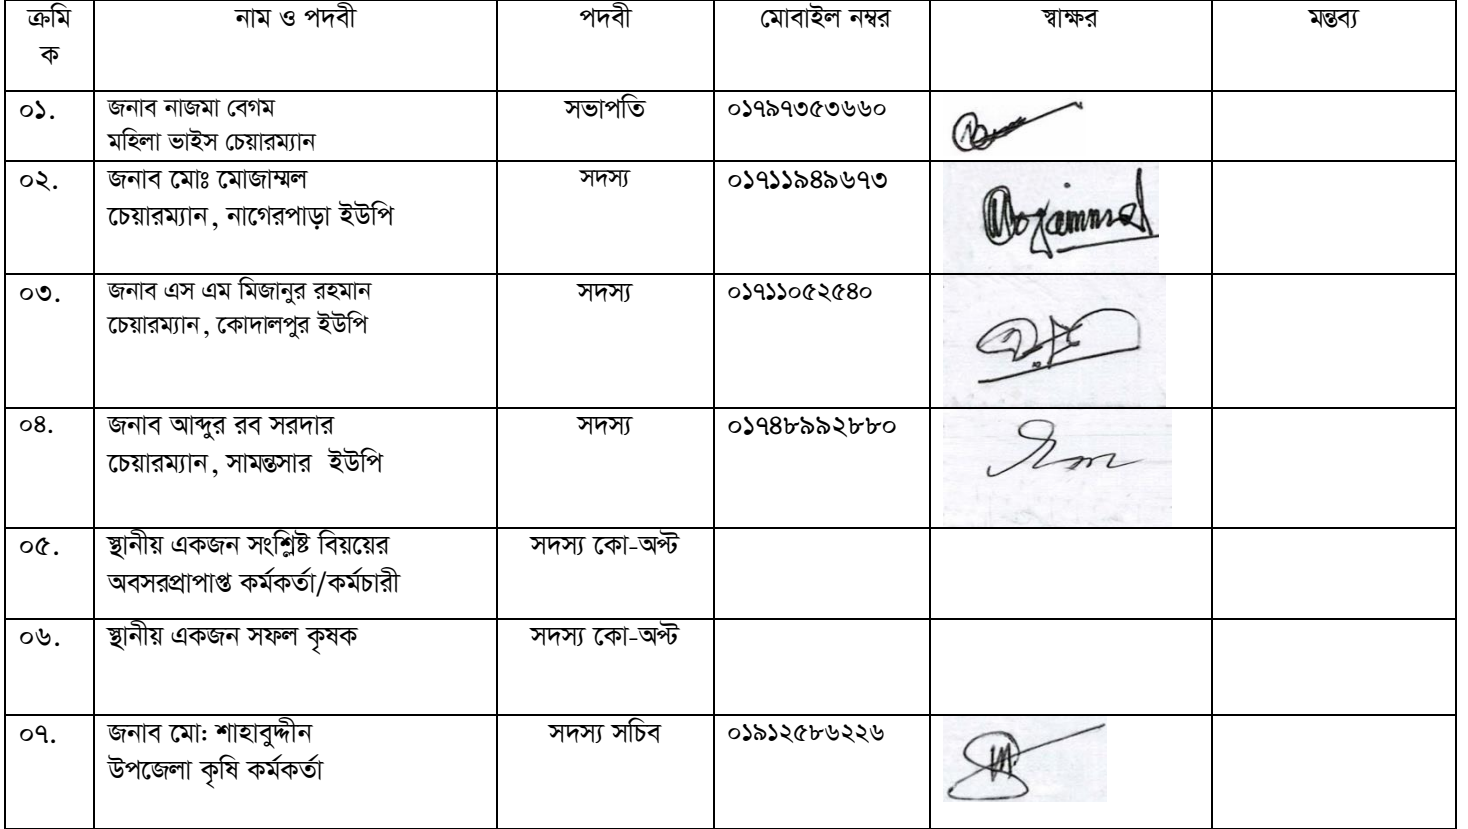 ক্রমি
ক
নাম ও পদবী
পদবী
মোবাইল নম্বর
স্বাক্ষর
মন্তব্য
০১.
জনাব নাজমা বেগম
মহিলা ভাইস চেয়ারম্যান
সভাপতি
০১৭৯৭৩৫৩৬৬০
০২.
জনাব মোঃ মোজাম্মল
চেয়ারম্যান, নাগেরপাড়া ইউপি
সদস্য
০১৭১১৯৪৯৬৭৩
Mogammal
০৩.
জনাব এস এম মিজানুর রহমান
চেয়ারম্যান, কোদালপুর ইউপি
সদস্য
০১৭১১০৫২৫৪০
০৪.
জনাব আব্দুর রব সরদার
চেয়ারম্যান, সামন্তসার ইউপি
সদস্য
০১৭৪৮৯৯২৮৮০
০৫.
স্থানীয় একজন সংশ্লিষ্ট বিয়য়ের
অবসরপ্রাপাপ্ত কর্মকর্তা/কর্মচারী
সদস্য কো-অপ্ট
০৬.
স্থানীয় একজন সফল কৃষক
সদস্য কো-অপ্ট
০৭.
জনাব মো: শাহাবুদ্দীন
উপজেলা কৃষি কর্মকর্তা
সদস্য সচিব
০১৯১২৫৮৬২২৬